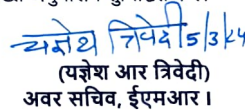 यज्ञेश त्रिवेदी 5/3/24
(यज्ञेश आर त्रिवेदी)
अवर सचिव, ईएमआर।